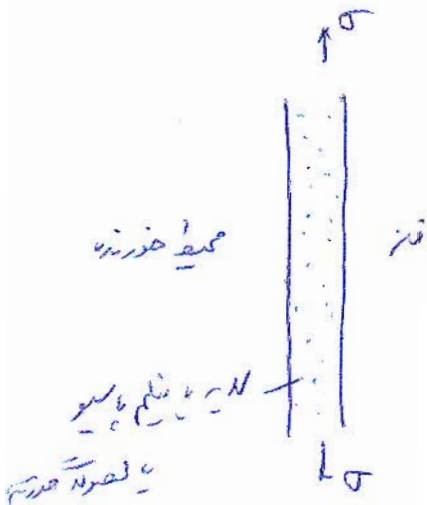 σ
محیط خورنده
فلز
لایه یا فیلم پاسیو
یا محصولات خوردگی
σ